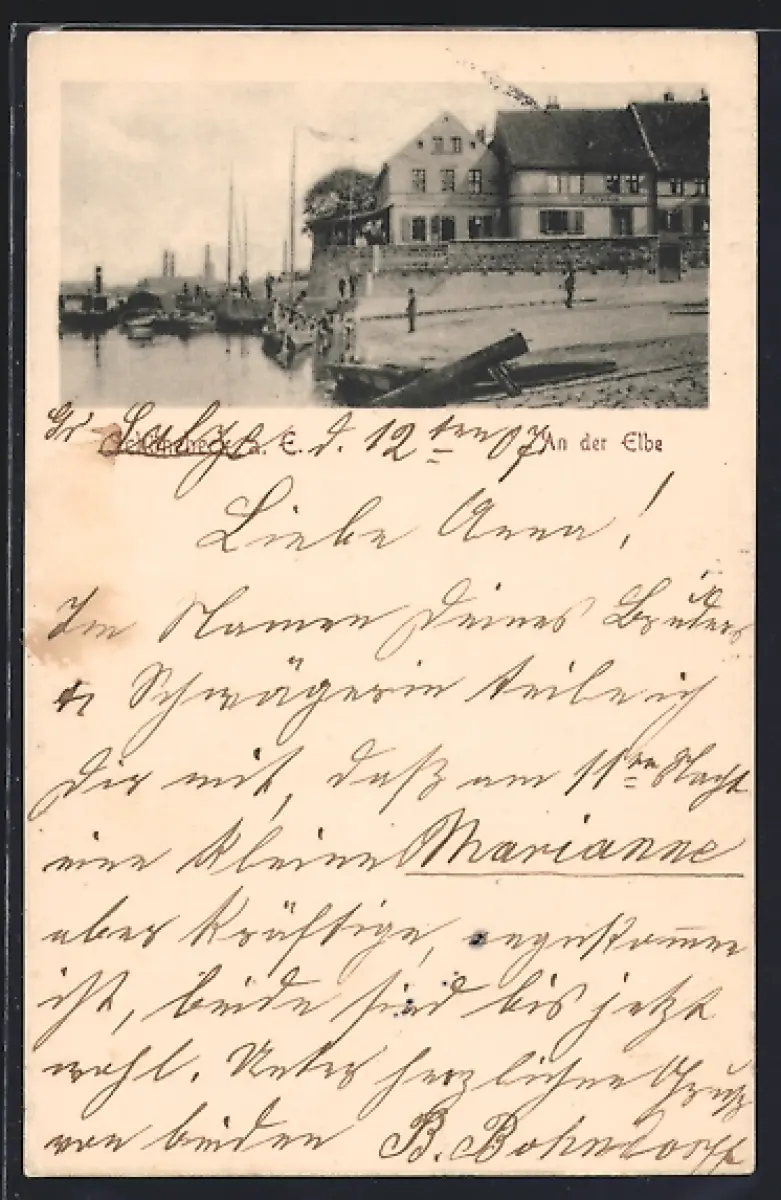 Gr. Salze d. 12ten 07
Schönebeck a. E. An der Elbe
Liebe Anna!
Im Namen Deines Bruders
u Schwägerin teile ich
Dir mit, daß am 11ten Nacht
eine kleine Marianne
aber kräftige, angekommen
ist, beide sind bis jetzt
wohl. Unter herzlichen Gruß
von beiden B. Bohndorff